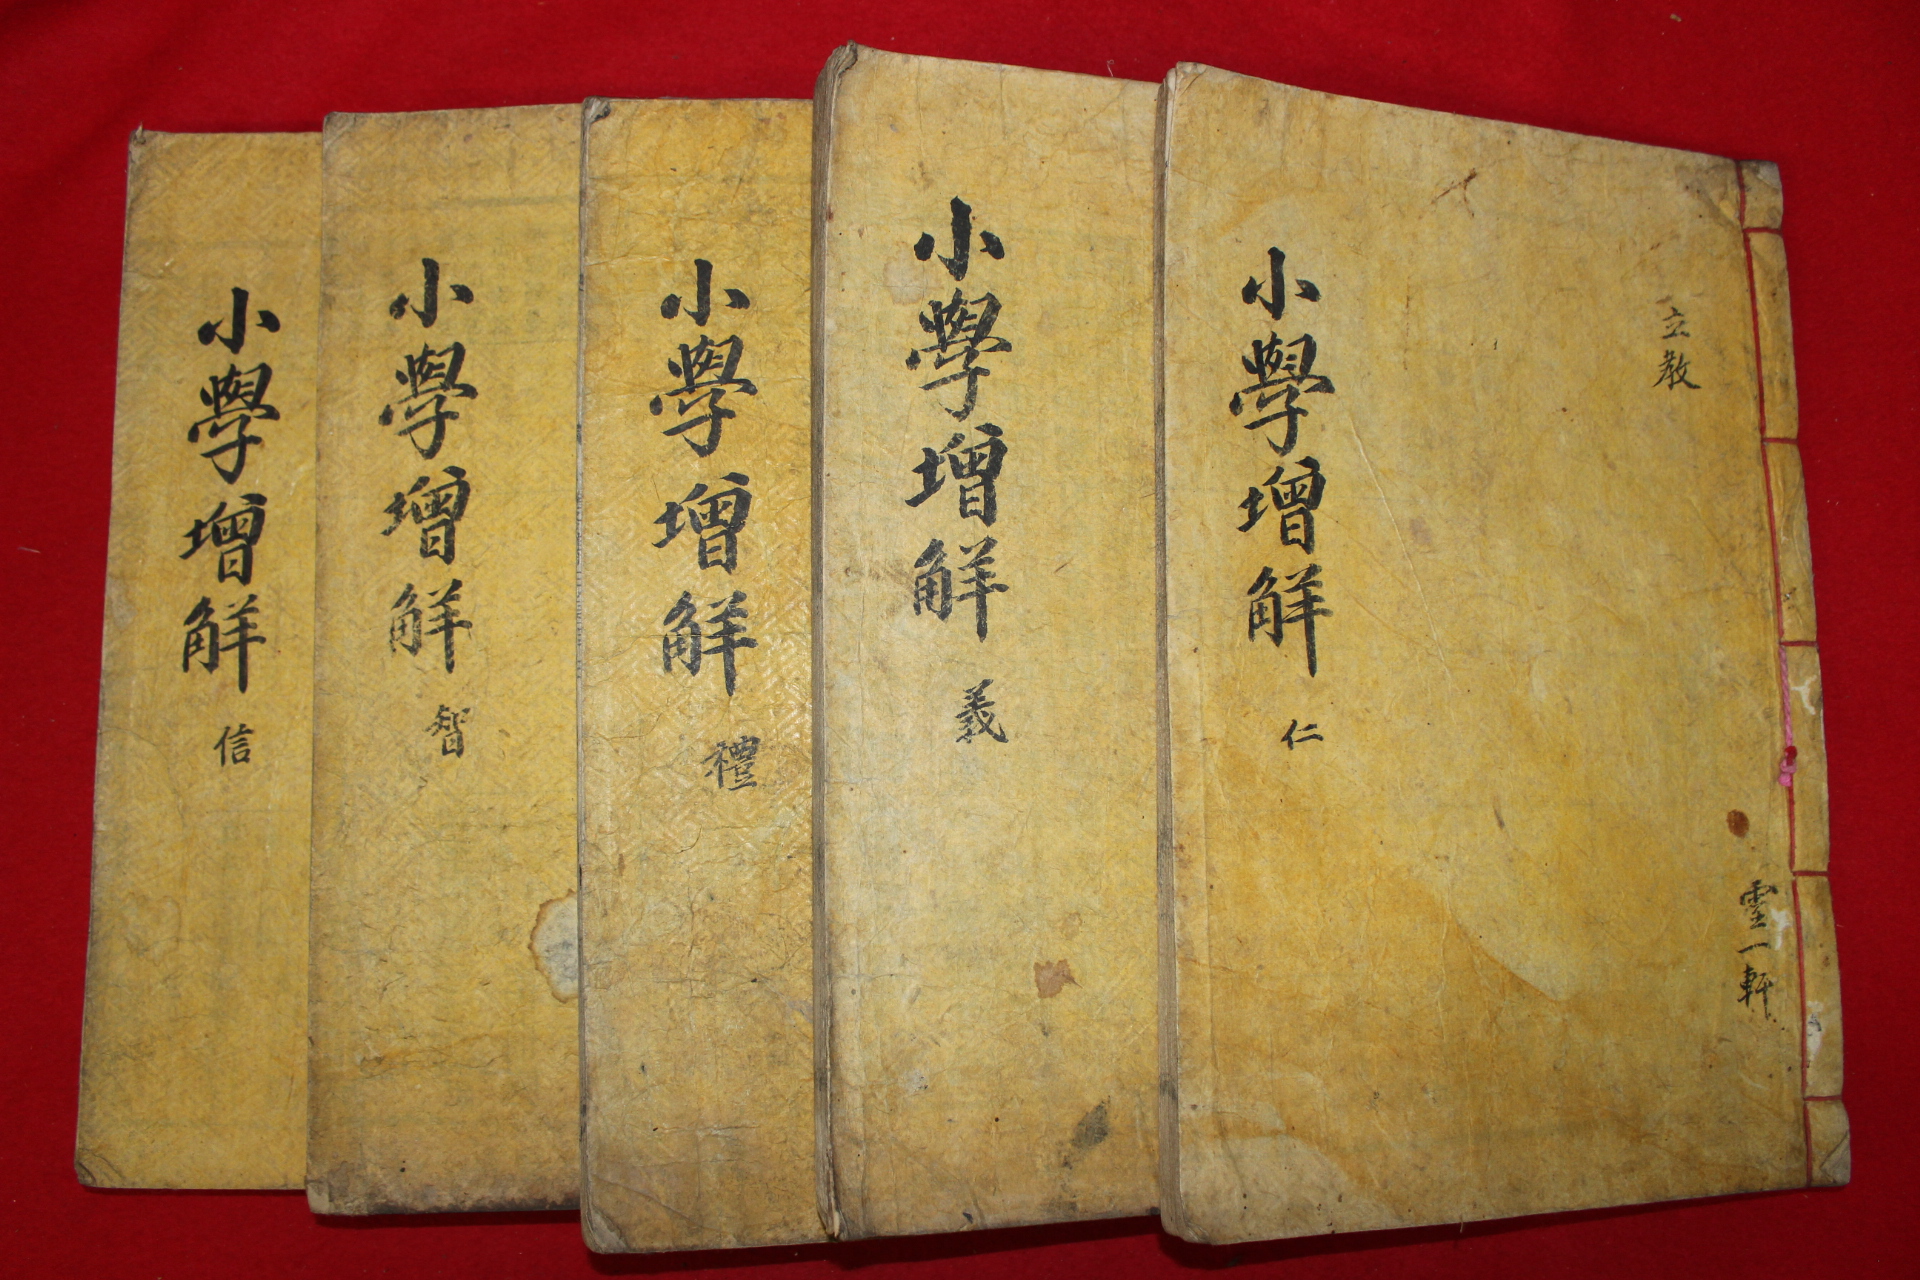 立教
小學增解 仁
靈一軒
小學增解 義
小學增解 禮
小學增解 智
小學增解 信